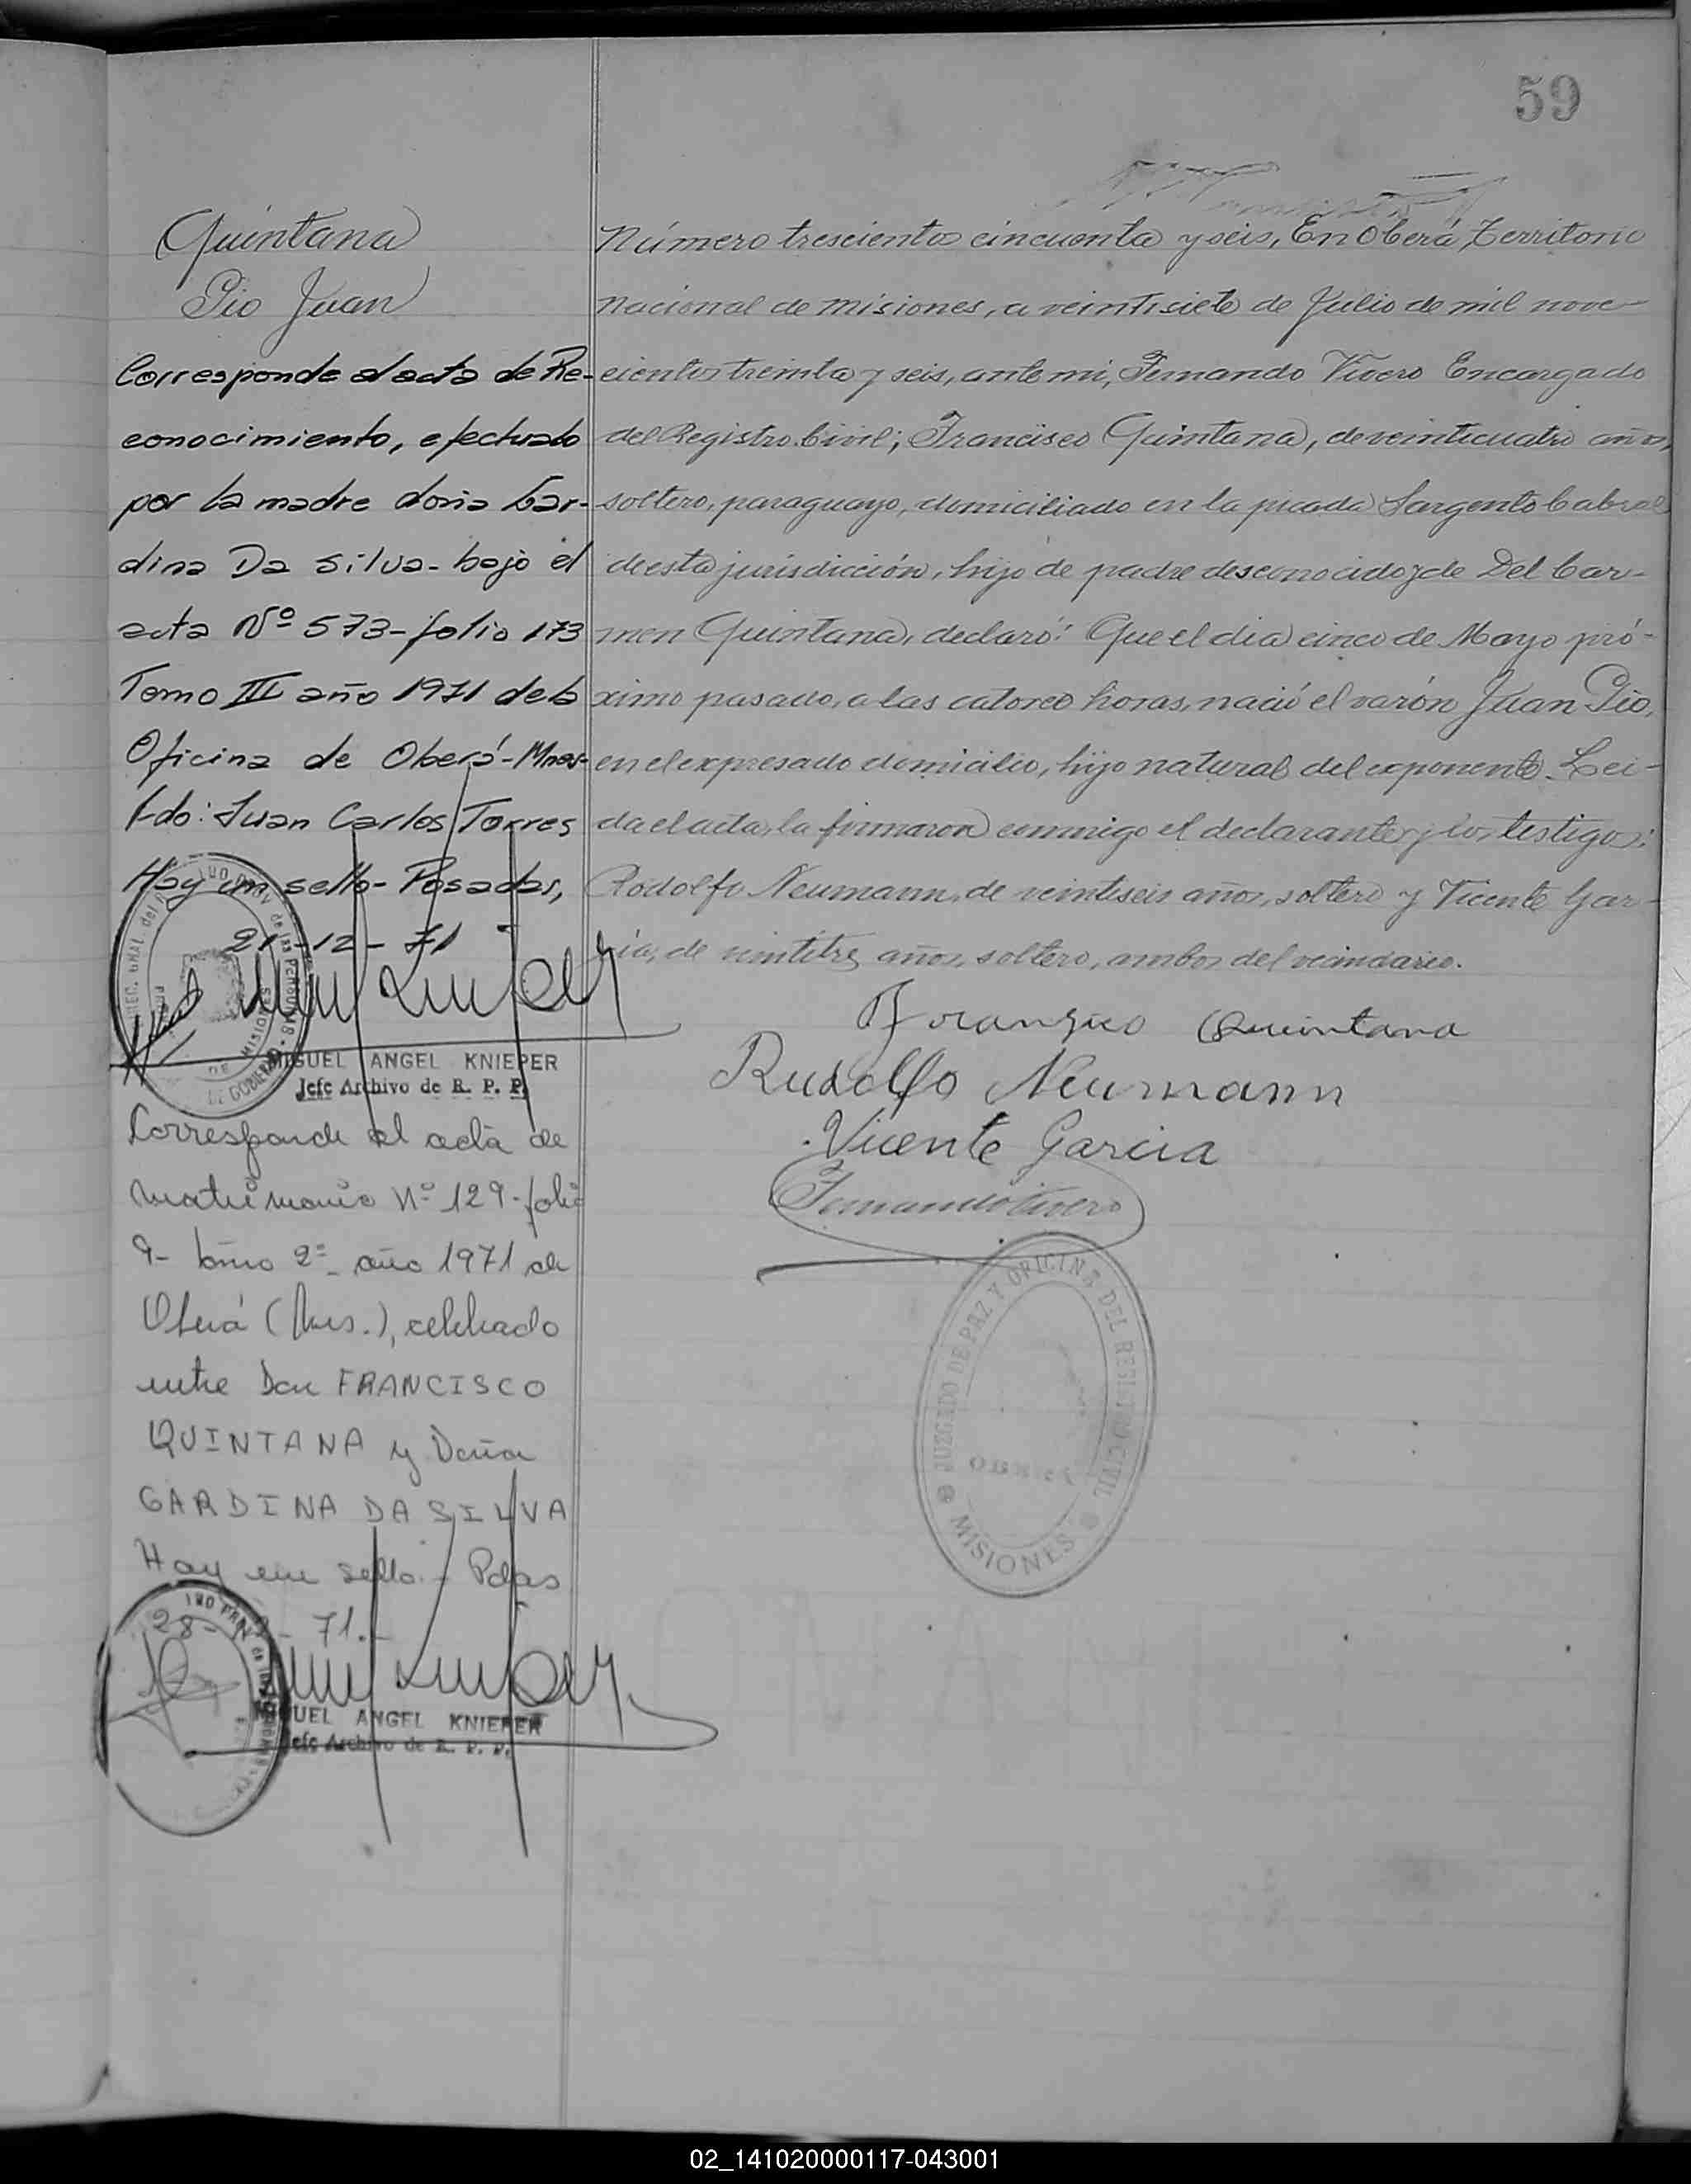 59
Quintana
Pio Juan
Corresponde al acta de Re-
conocimiento, efectuado
por la madre doña Gar-
dina Da Silva - bajo el
acta Nº 573 - folio 173
Tomo III año 1971 de la
Oficina de Oberá - Mnes-
Fdo: Juan Carlos Torres
Hay un sello - Posadas,
21-12-71
MIGUEL ANGEL KNIEPER
Jefe Archivo de R. P. P.
Corresponde al acta de
matrimonio Nº 129 - folio
9 - tomo 2º - año 1971 de
Oberá (Mnes.), celebrado
entre Don FRANCISCO
QUINTANA y Doña
GARDINA DA SILVA
Hay un sello. - Pdas
28- - 71.-
MIGUEL ANGEL KNIEPER
Jefe Archivo de R. P. P.
Número trescientos cincuenta y seis, En Oberá, Territorio
Nacional de Misiones, a veintisiete de Julio de mil nove-
cientos treinta y seis, ante mi, Fernando Vivero Encargado
del Registro Civil; Francisco Quintana, de veinticuatro años,
soltero, paraguayo, domiciliado en la picada Sargento Cabral
de esta jurisdicción, hijo de padre desconocido y de Del Car-
men Quintana, declaró: Que el dia cinco de Mayo pró-
ximo pasado, a las catorce horas, nació el varón Juan Pio,
en el expresado domicilio, hijo natural del exponente. Lei-
da el acta, la firmaron conmigo el declarante y los testigos:
Rodolfo Neumann, de veintiseis años, soltero y Vicente Gar-
cia, de veintitres años, soltero, ambos del vecindario.
Francisco Quintana
Rudolfo Neumann
Vicente Garcia
Fernando Vivero
JUZGADO DE PAZ Y OFICINA DEL REGISTRO CIVIL
MISIONES
02_141020000117-043001